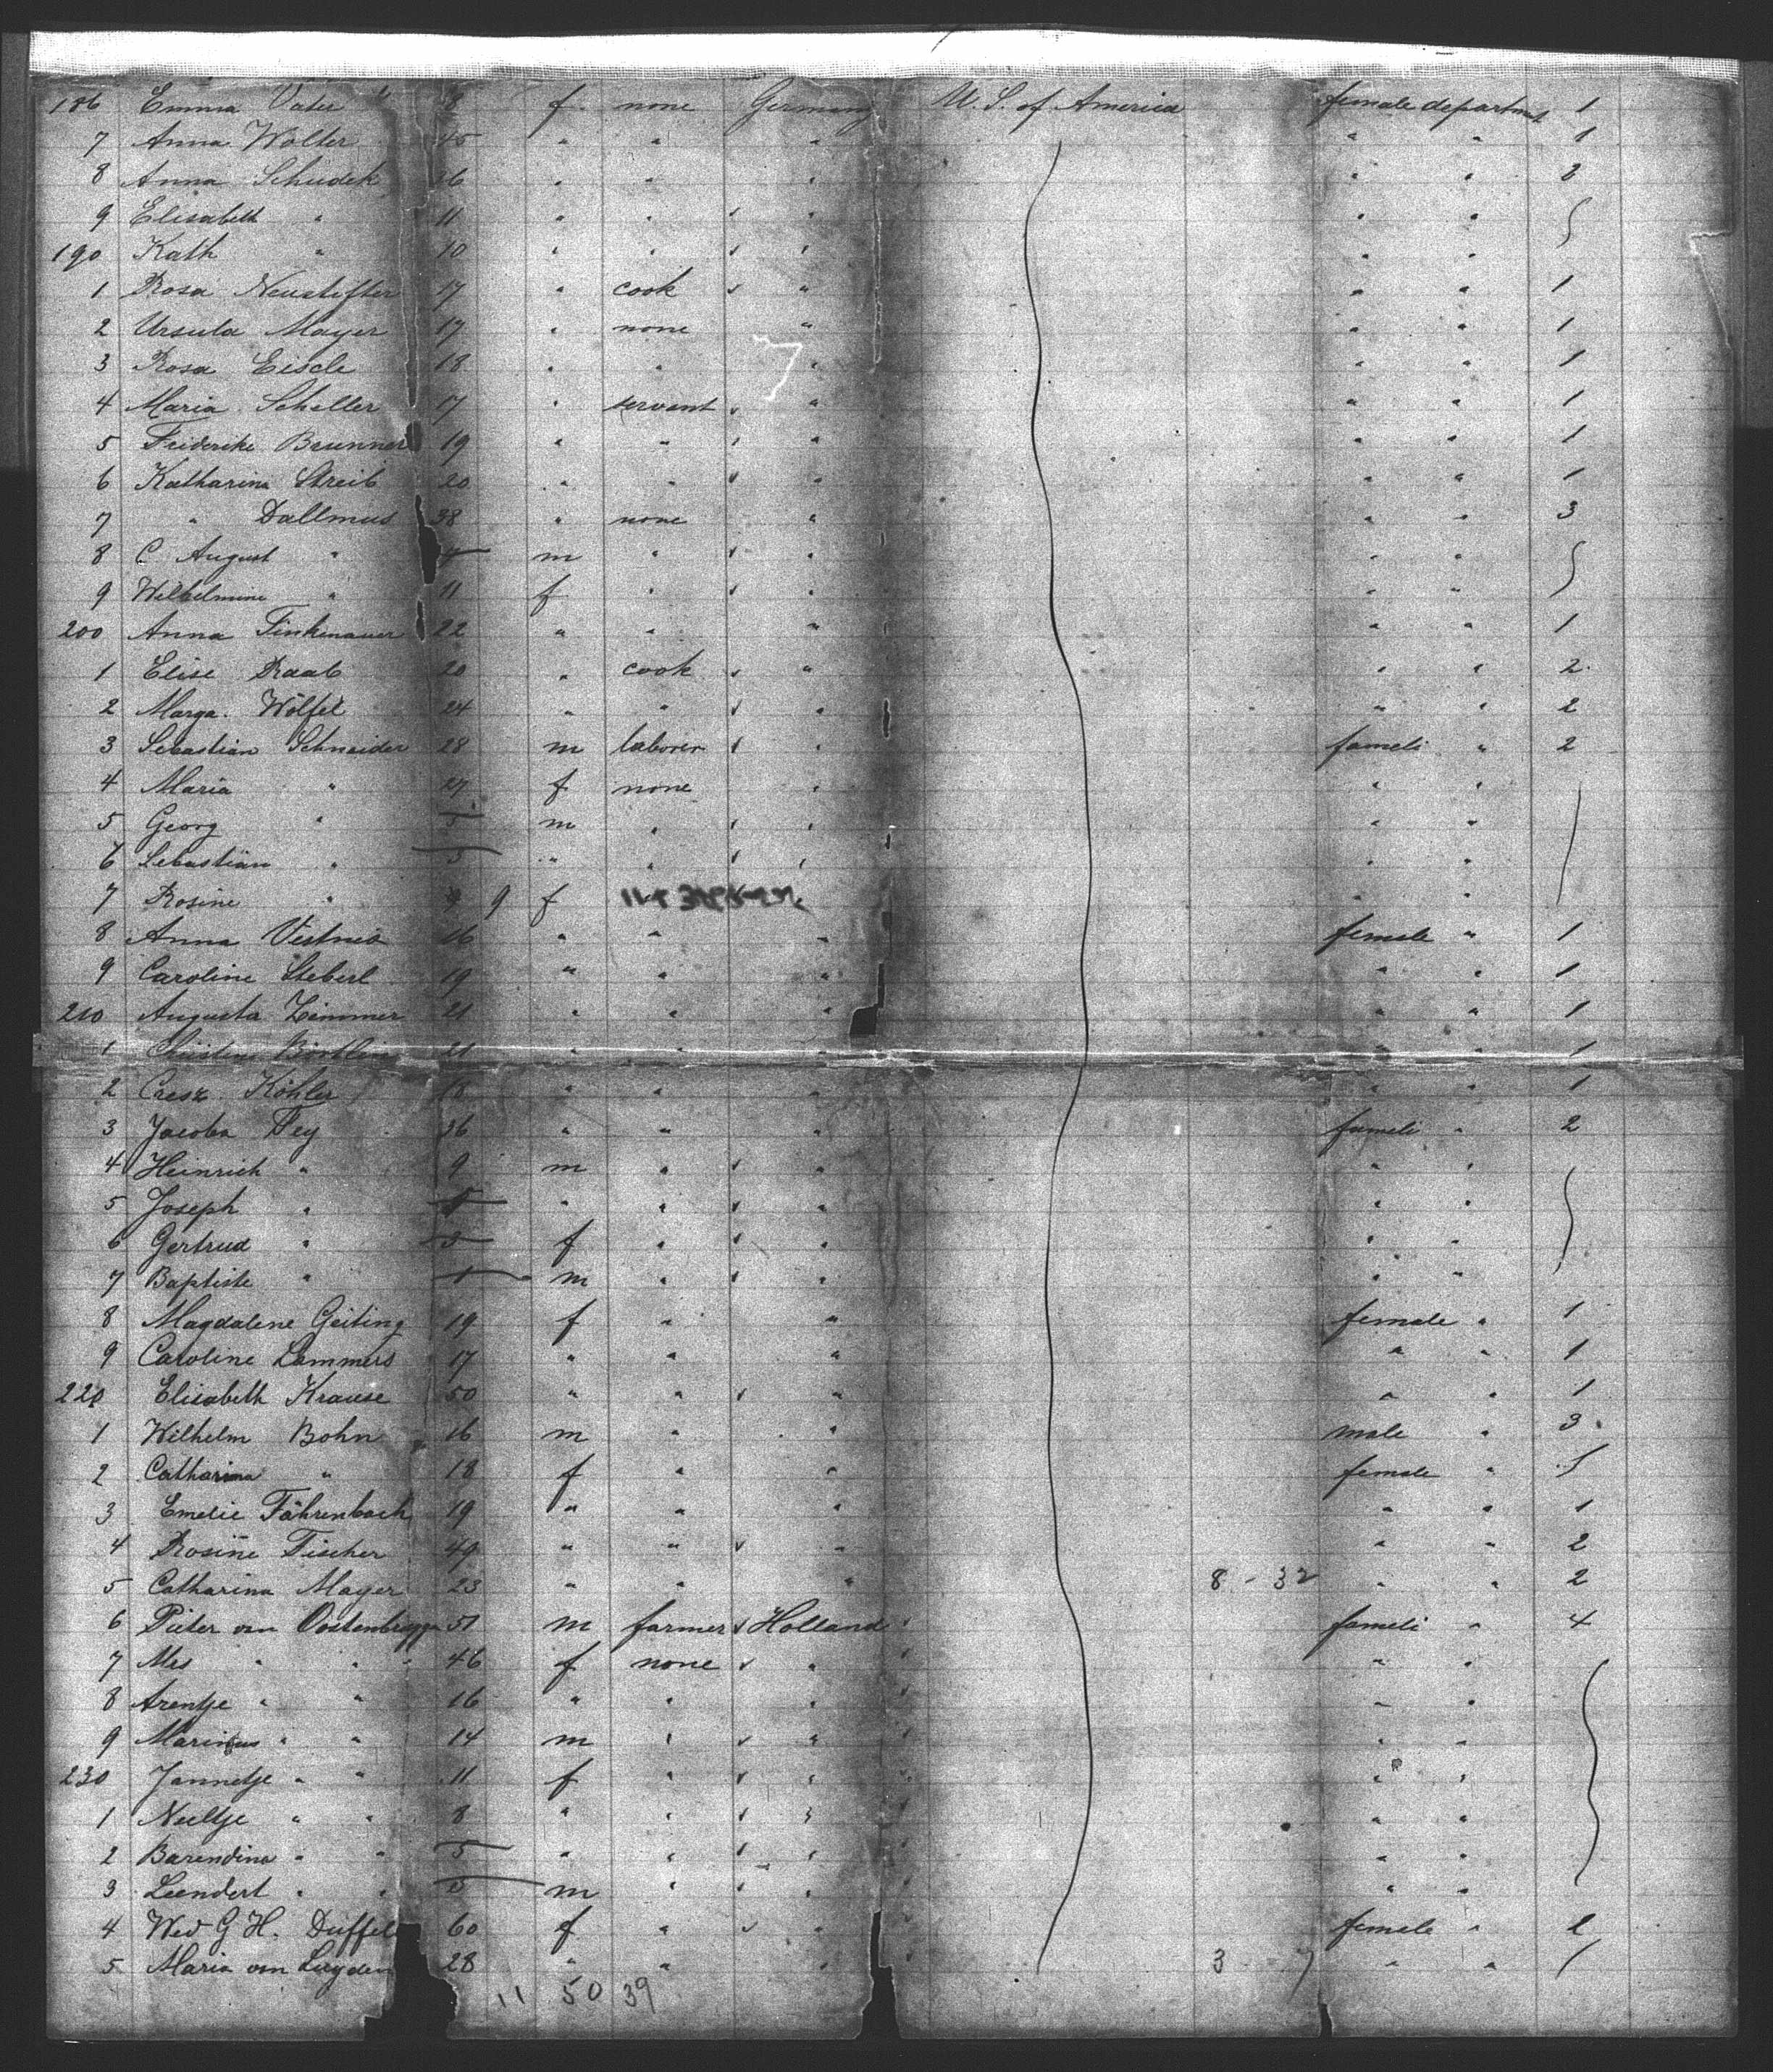 186 Emma Vater 18 f none Germany U. S. of America female departmt 1
7 Anna Wolter 45 " " " " " 1
8 Anna Schudek 36 " " " " " 3
9 Elisabeth " 11 " " " " "
190 Kath " 10 " " " " "
1 Rosa Neustifter 17 " cook " " " 1
2 Ursula Mayer 17 " none " " " 1
3 Rosa Eisele 18 " " " " " 1
4 Maria Scheller 17 " servant " " " 1
5 Friderike Brunner 19 " " " " " 1
6 Katharina Streib 20 " " " " " 1
7 " Dallmus 38 " none " " " 3
8 C August " m " " " "
9 Wilhelmine " 11 f " " " "
200 Anna Finkenauer 22 " " " " " 1
1 Elise Raab 20 " cook " " " 2
2 Marga. Wölfel 24 " " " " " 2
3 Sebastian Schneider 28 m laborer " fameli " 2
4 Maria " 27 f none " " "
5 Georg " 5 m " " " "
6 Sebastian " 3 " " " " "
7 Rosine " 9 f " "
8 Anna 16 " " " female " 1
9 Caroline Steberl 19 " " " " " 1
210 Augusta Zimmer 21 " " " " " 1
1 21 " " " " " 1
2 Cresz. Köhler 18 " " " " " 1
3 Jacoba Pey 36 " " " fameli " 2
4 Heinrich " 9 m " " " "
5 Joseph " " " " " "
6 Gertrud " 3 f " " " "
7 Baptiste " 1 m " " " "
8 Magdalene Geiting 19 f " " female " 1
9 Caroline Lammers 17 " " " " " 1
220 Elisabeth Krause 50 " " " " " 1
1 Wilhelm Bohn 16 m " " male " 3
2 Catharina " 18 f " " female "
3 Emelie Fährenbach 19 " " " " " 1
4 Rosine Fischer 49 " " " " " 2
5 Catharina Mayer 23 " " " 8 - 32 " " 2
6 Pieter van Oostenbrugge 51 m farmer Holland fameli " 4
7 Mrs " " " 46 f none " " "
8 Arentje " " 16 " " " " "
9 Marinus " " 14 m " " " "
230 Jannetje " " 11 f " " " "
1 Neeltje " " 8 " " " " "
2 Barendina " " 5 " " " " "
3 Leendert " " m " " " "
4 Wed G H. Duffels 60 f " " female "
5 Maria van Luyden 28 " " " 3 7 " "
11 50 39